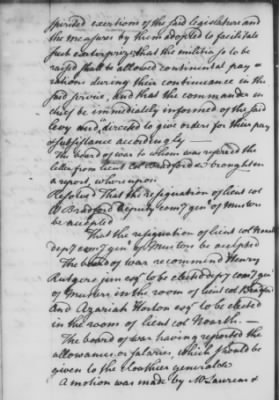 spirited exertions of the said legislature and
the measures by them adopted to facilitate
such enterprize; that the militia so to be
raised shall be allowed continental pay &
rations during their continuance in the
said service, and that the commander in
chief be immediately informed of the said
levy and directed to give orders for their pay
& subsistance accordingly —
The board of war to whom was referred the
letter from lieut col Bradford &c brought in
a report, whereupon
Resolved That the resignation of lieut col
W Bradford deputy comy genl of musters
be accepted
That the resignation of lieut col Noarth
depy comy genl of musters be accepted
The board of war recommend Henry
Rutgers junr esqr to be elected depy comy genl
of musters in the room of lieut col Bradford
And Azariah Horton esqr to be elected
in the room of lieut col Noarth. —
The board of war having reported the
allowances or salaries, which should be
given to the cloathier general &
A motion was made by Mr Laurens &